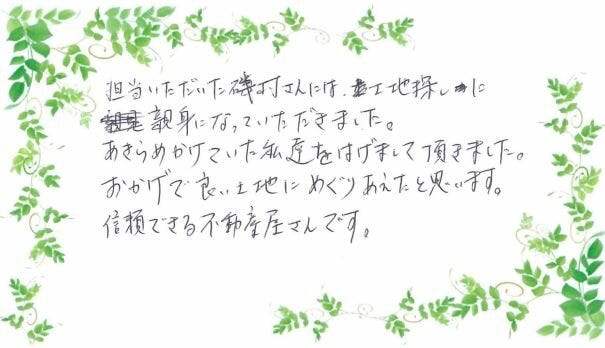 担当いただいた磯村さんには、土地探しに
親身になっていただきました。
あきらめかけていた私達をはげまして頂きました。
おかげで良い土地にめぐりあえたと思います。
信頼できる不動産屋さんです。